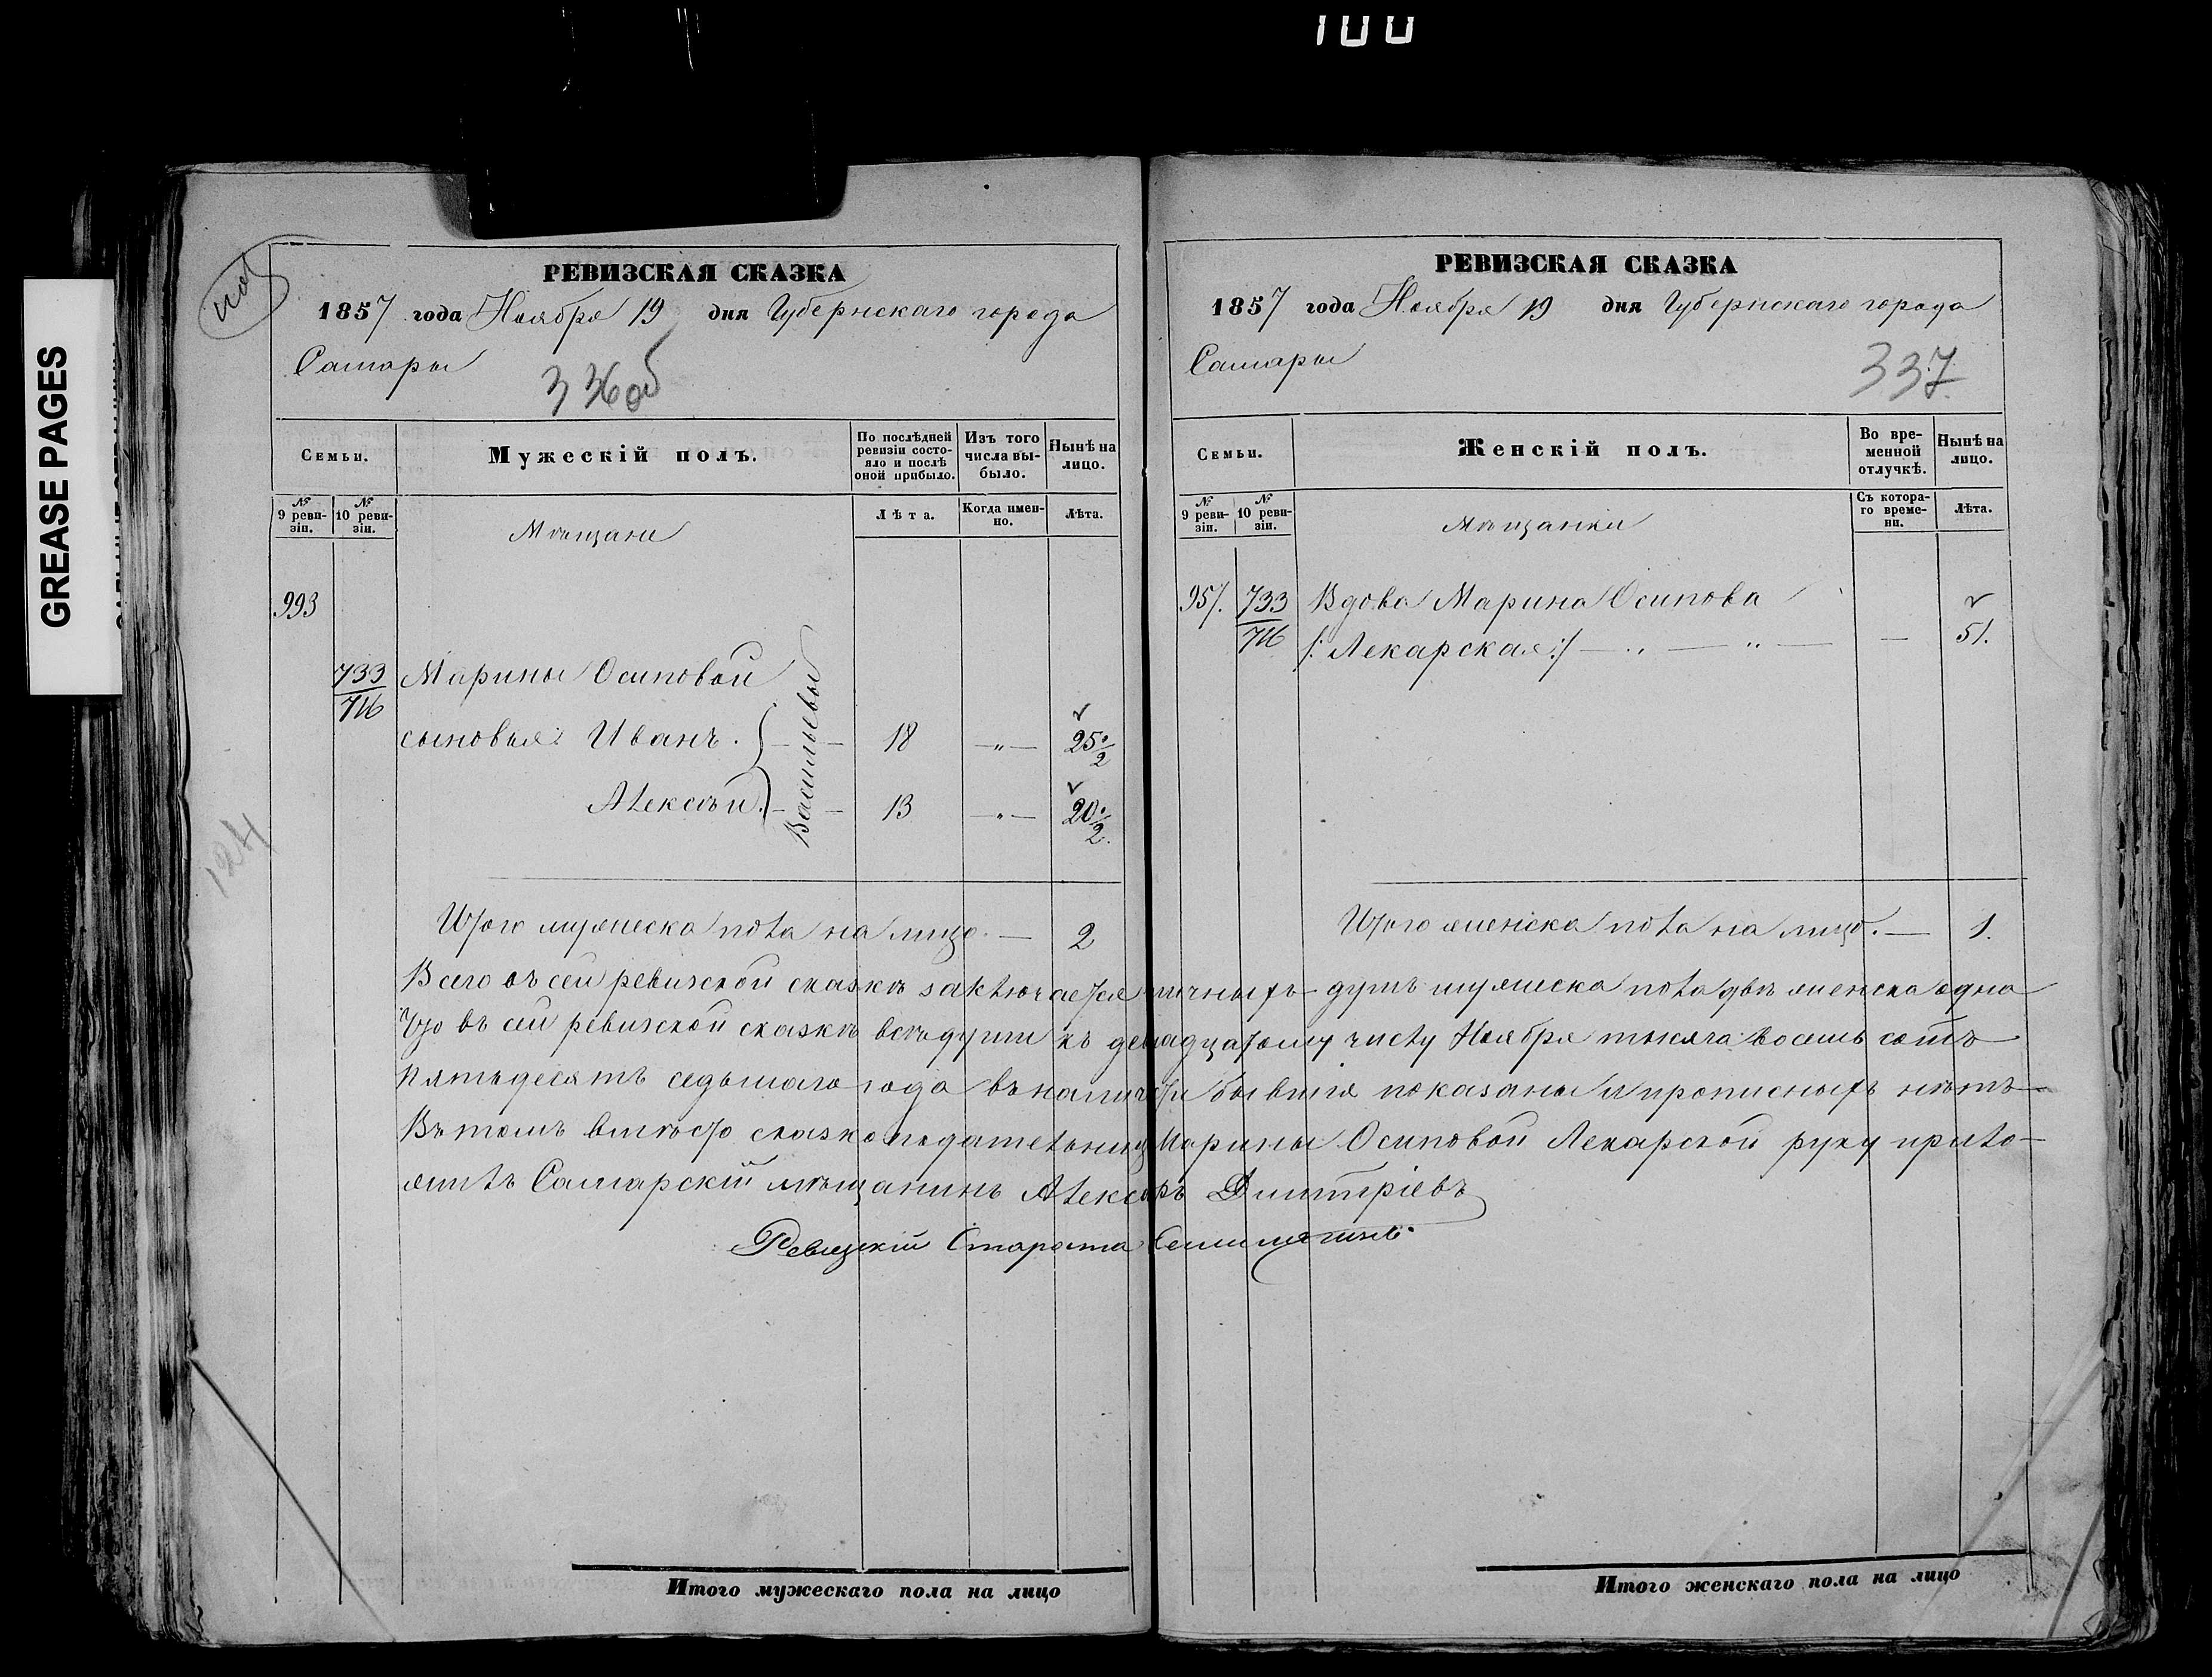 100
GREASE PAGES
РЕВИЗСКАЯ СКАЗКА
1857 года Ноября 19 дня Губернскаго города
Самары
336об
Семьи.
Мужескій полъ.
По послѣдней ревизіи состояло и послѣ оной прибыло.
Изъ того числа выбыло.
Нынѣ на лицо.
№ 9 ревизіи.
№ 10 ревизіи.
Мѣщане
Лѣта.
Когда именно.
Лѣта.
993
733
716
Марины Осиповой
сыновья: Иванъ. 18 —„— 25
2
Алексѣй. 13 —„— 20
2.
Васильевы
124
Итого мужеска пола на лицо. — 2
РЕВИЗСКАЯ СКАЗКА
1857 года Ноября 19 дня Губернскаго города
Самары
337
Семьи.
Женскій полъ.
Во временной отлучкѣ.
Нынѣ на лицо.
№ 9 ревизіи.
№ 10 ревизіи.
Мѣщанки
Съ котораго времени.
Лѣта.
957. 733 Вдова Марина Осипова
716 /: Лекарская :/ — „ — „ — — 51.
Итого женска пола на лицо. — 1.
Всего въ сей ревизской сказкѣ заключается личныхъ душъ мужеска пола двѣ женска одна
Что въ сей ревизской сказкѣ всѣ души къ девятнадцатому числу Ноября тысяча восемь сотъ
пятьдесятъ седьмаго года въ наличіи бывшія показаны и прописныхъ нѣтъ —
Въ томъ вмѣсто сказкоподательницы Марины Осиповой Лекарской руку прило-
жилъ Самарскій мѣщанинъ Дмитріевъ
Ревизскій Староста
Итого мужескаго пола на лицо
Итого женскаго пола на лицо